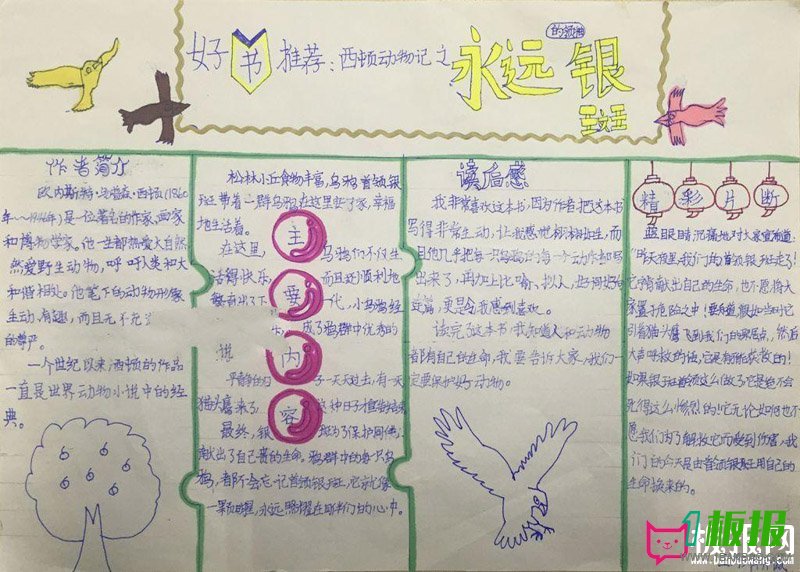 好书推荐：西顿动物记之永远的领袖银
王文王
作者简介
欧内斯特·
西顿（1860
年～1946年）是一位著名的作家，画家
和博物学家。他一生都热爱大自然
然爱野生动物，呼吁人类和大
和谐相处。他笔下的动物形象
生动，有趣，而且无不充
的尊严。
一个世纪以来，西顿的作品
一直是世界动物小说中的经
典。
主要内容
松林小丘食物丰富，乌鸦首领银
斑带着一群乌鸦在这里安了家，幸福
地生活着。
在这里，乌鸦们不仅生
活得快乐，而且还顺利地
一代，小乌鸦经
成了鸦群中优秀的
子一天天过去，有一
猫头鹰来了，
最终，银斑为了保护同伴，
献出了自己宝贵的生命。鸦群中的每只乌
鸦，都不会忘记首领银斑，它就象
一颗明星，永远照耀在同伴们的心中。
读后感
我非常喜欢这本书，因为作者把这本书
写得非常生动，让我感觉栩栩如生，而
且他几乎把每一只乌鸦的每一个动作都写
出来了，再加上比喻、拟人，
更是令我感到喜欢。
读完了这本书，我知道人和动物
都有自己的生命，我要告诉大家，我们一
定要保护好动物。
精彩片断
蓝眼睛沉痛地对大家宣布道：
“昨天夜里，我们的首领银斑走了！
它情愿献出自己的生命，也不愿将大
家置于危险之中！要知道，假如当时它
引着猫头鹰飞到我们的聚居点，然后
大声呼救的话，它是有可能获救的！
如果银斑首领这么做了，它是绝不会
死得这么惨烈的！它无论如何也不
愿我们为了解救它而受到伤害，我
们的今天是由首领银斑用自己的
生命换来的。
1板报
板报网
www.banbaowang.com